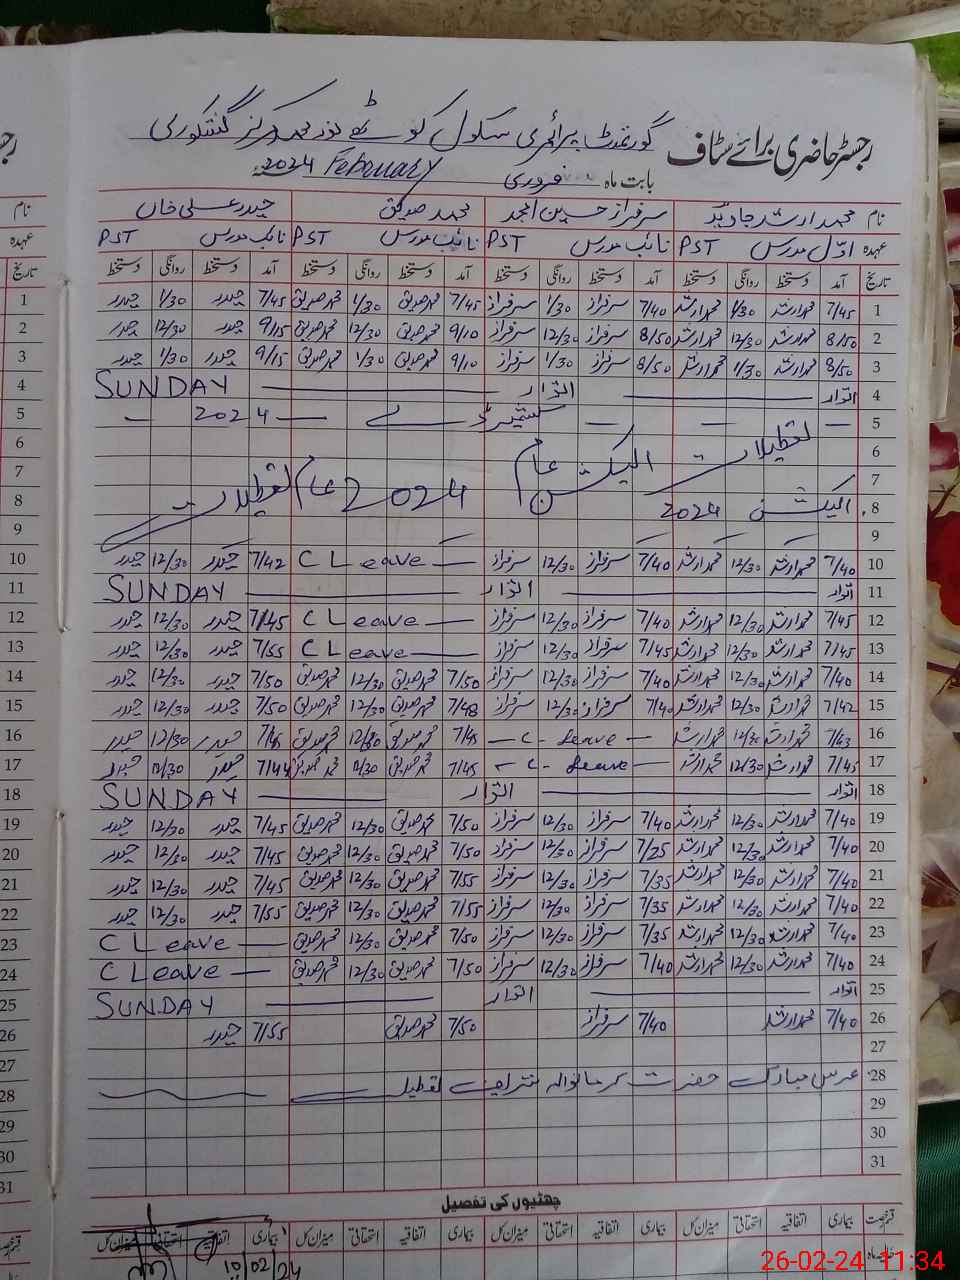 رجسٹر حاضری برائے سٹاف گورنمنٹ پرائمری سکول
بابت ماہ فروری February 2024
نام محمد ارشد جاوید سرفراز حسین امجد محمد صدیق حیدر علی خاں
عہدہ اوّل مدرس PST نائب مدرس PST نائب مدرس PST نائب مدرس PST
تاریخ آمد دستخط روانگی دستخط آمد دستخط روانگی دستخط آمد دستخط روانگی دستخط آمد دستخط روانگی دستخط
1 7/45 محمد ارشد 1/30 محمد ارشد 7/40 سرفراز 1/30 سرفراز 7/45 محمد صدیق 1/30 محمد صدیق 7/45 حیدر 1/30 حیدر
2 8/50 محمد ارشد 12/30 محمد ارشد 8/50 سرفراز 12/30 سرفراز 9/10 محمد صدیق 12/30 محمد صدیق 9/15 حیدر 12/30 حیدر
3 8/50 محمد ارشد 1/30 محمد ارشد 8/50 سرفراز 1/30 سرفراز 9/10 محمد صدیق 1/30 محمد صدیق 9/15 حیدر 1/30 حیدر
4 اتوار اتوار SUNDAY
5 کشمیر ڈے 2024
6 تعطیلات الیکشن عام
7 2024 عام تعطیلات
8 الیکشن 2024
9
10 7/40 محمد ارشد 12/30 محمد ارشد 7/40 سرفراز 12/30 سرفراز C Leave 7/42 حیدر 12/30 حیدر
11 اتوار اتوار SUNDAY
12 7/45 محمد ارشد 12/30 محمد ارشد 7/40 سرفراز 12/30 سرفراز C Leave 7/45 حیدر 12/30 حیدر
13 7/45 محمد ارشد 12/30 محمد ارشد 7/45 سرفراز 12/30 سرفراز C Leave 7/55 حیدر 12/30 حیدر
14 7/40 محمد ارشد 12/30 محمد ارشد 7/40 سرفراز 12/30 سرفراز 7/50 محمد صدیق 12/30 محمد صدیق 7/50 حیدر 12/30 حیدر
15 7/42 محمد ارشد 12/30 محمد ارشد 7/40 سرفراز 12/30 سرفراز 7/48 محمد صدیق 12/30 محمد صدیق 7/50 حیدر 12/30 حیدر
16 7/43 محمد ارشد 12/30 محمد ارشد C- Leave 7/45 محمد صدیق 12/30 محمد صدیق 7/45 حیدر 12/30 حیدر
17 7/45 محمد ارشد 12/30 محمد ارشد C- Leave 7/45 محمد صدیق 12/30 محمد صدیق 7/44 حیدر 12/30 حیدر
18 اتوار اتوار SUNDAY
19 7/40 محمد ارشد 12/30 محمد ارشد 7/40 سرفراز 12/30 سرفراز 7/50 محمد صدیق 12/30 محمد صدیق 7/45 حیدر 12/30 حیدر
20 7/40 محمد ارشد 12/30 محمد ارشد 7/25 سرفراز 12/30 سرفراز 7/50 محمد صدیق 12/30 محمد صدیق 7/45 حیدر 12/30 حیدر
21 7/40 محمد ارشد 12/30 محمد ارشد 7/35 سرفراز 12/30 سرفراز 7/55 محمد صدیق 12/30 محمد صدیق 7/45 حیدر 12/30 حیدر
22 7/40 محمد ارشد 12/30 محمد ارشد 7/35 سرفراز 12/30 سرفراز 7/55 محمد صدیق 12/30 محمد صدیق 7/55 حیدر 12/30 حیدر
23 7/40 محمد ارشد 12/30 محمد ارشد 7/35 سرفراز 12/30 سرفراز 7/50 محمد صدیق 12/30 محمد صدیق C Leave
24 7/40 محمد ارشد 12/30 محمد ارشد 7/40 سرفراز 12/30 سرفراز 7/50 محمد صدیق 12/30 محمد صدیق C Leave
25 اتوار اتوار SUNDAY
26 7/40 محمد ارشد 7/40 سرفراز 7/50 محمد صدیق 7/55 حیدر
27
28 عرس مبارک حضرت کرمانوالہ شریف تعطیل
29
30
31
چھٹیوں کی تفصیل
قسم رخصت بیماری اتفاقیہ استحقاقی میزان کل بیماری اتفاقیہ استحقاقی میزان کل بیماری اتفاقیہ استحقاقی میزان کل بیماری اتفاقیہ استحقاقی میزان کل
10/02/24
26-02-24 11:34